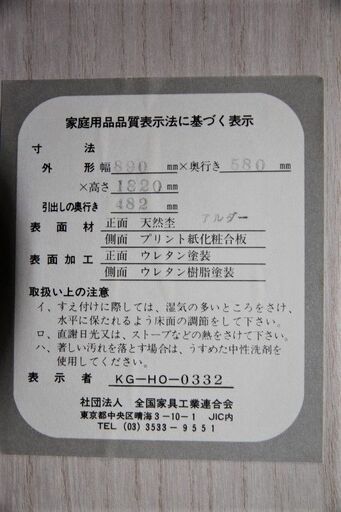 家庭用品品質表示法に基づく表示
寸法
外形 幅890mm×奥行き580mm
×高さ1820mm
引出しの奥行き 482mm
表面材 正面 天然杢 アルダー
側面 プリント紙化粧合板
表面加工 正面 ウレタン塗装
側面 ウレタン樹脂塗装
取扱い上の注意
イ、すえ付けに際しては、湿気の多いところをさけ、
水平に保たれるよう床面の調節をして下さい。
ロ、直謝日光又は、ストーブなどの熱をさけて下さい。
ハ、著しい汚れを落とす場合は、うすめた中性洗剤を
使用してください。
表示者 KG-HO-0332
社団法人 全国家具工業連合会
東京都中央区晴海3-10-1 JIC内
TEL (03) 3533-9551